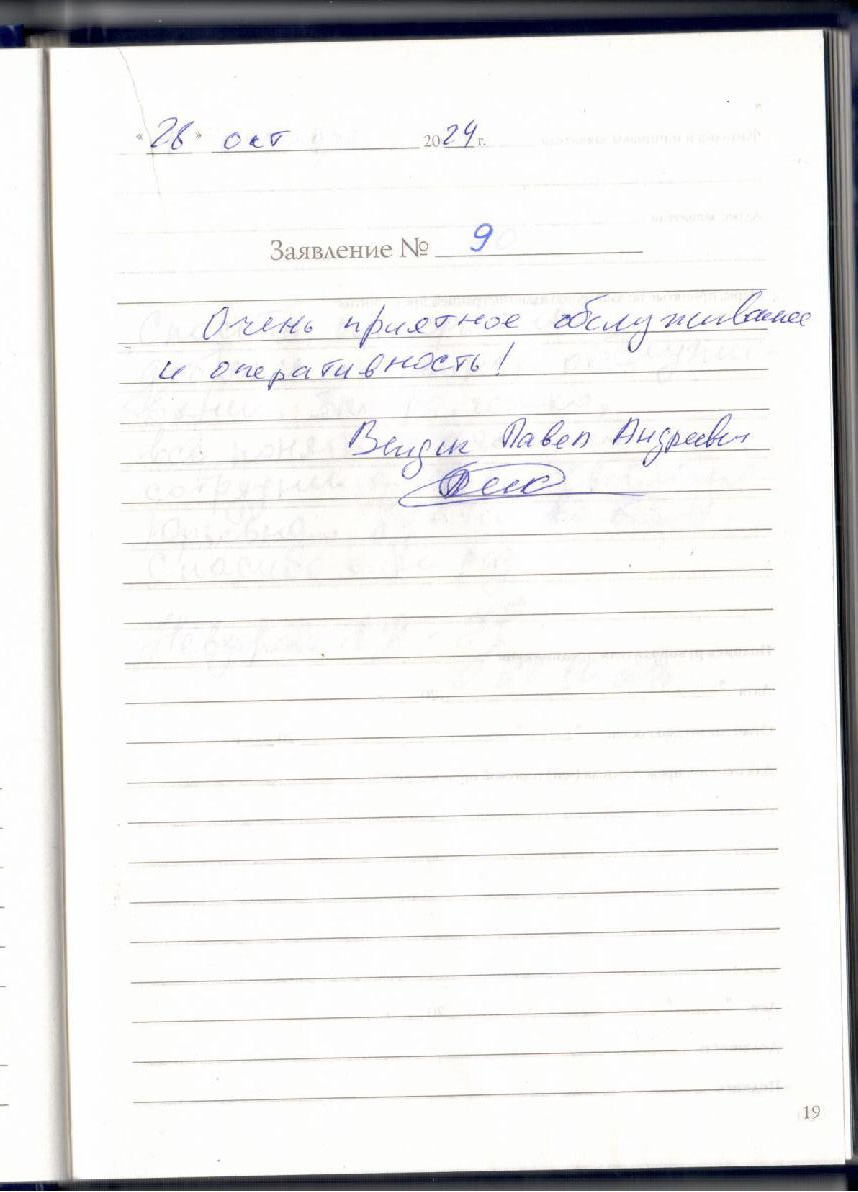 «26» окт 2024 г.
Заявление № 9
Очень приятное обслуживание
и оперативность!
Павел Андреевич
19